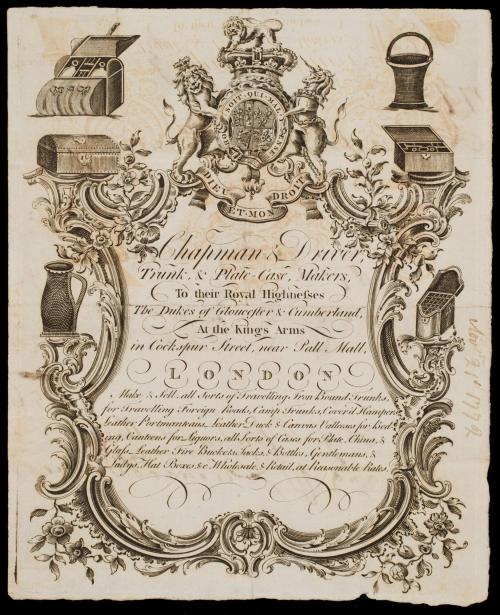 HONI SOIT QUI MAL Y PENSE
DIEU ET MON DROIT
Chapman & Driver,
Trunk, & Plate-Case, Makers,
To their Royal Highneſses
The Dukes of Gloucester & Cumberland,
At the King's Arms
in Cockspur Street, near Pall Mall,
LONDON
Make & Sell, all Sorts of Travelling Iron Bound Trunks,
for Travelling Foreign Roads, Camp Trunks, Cover'd Hampers
Leather Portmanteaus, Leather Duck & Canvas Valleases for Bed-
ing, Canteens for Liquors, all Sorts of Cases for Plate, China, &
Glaſs, Leather Fire Buckets, Jacks, & Bottles, Gentlemens, &
Ladys, Hat Boxes, &c. Wholesale, & Retail, at Reasonable Rates.